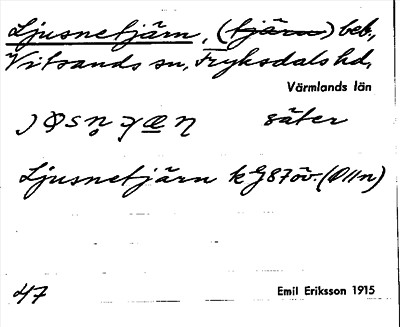 Ljusnetjärn, (tjärn) beb.,
Vitsands sn, Fryksdals hd,
Värmlands län
säter
Ljusnetjärn k G87öv. (Ø11n)
47
Emil Eriksson 1915